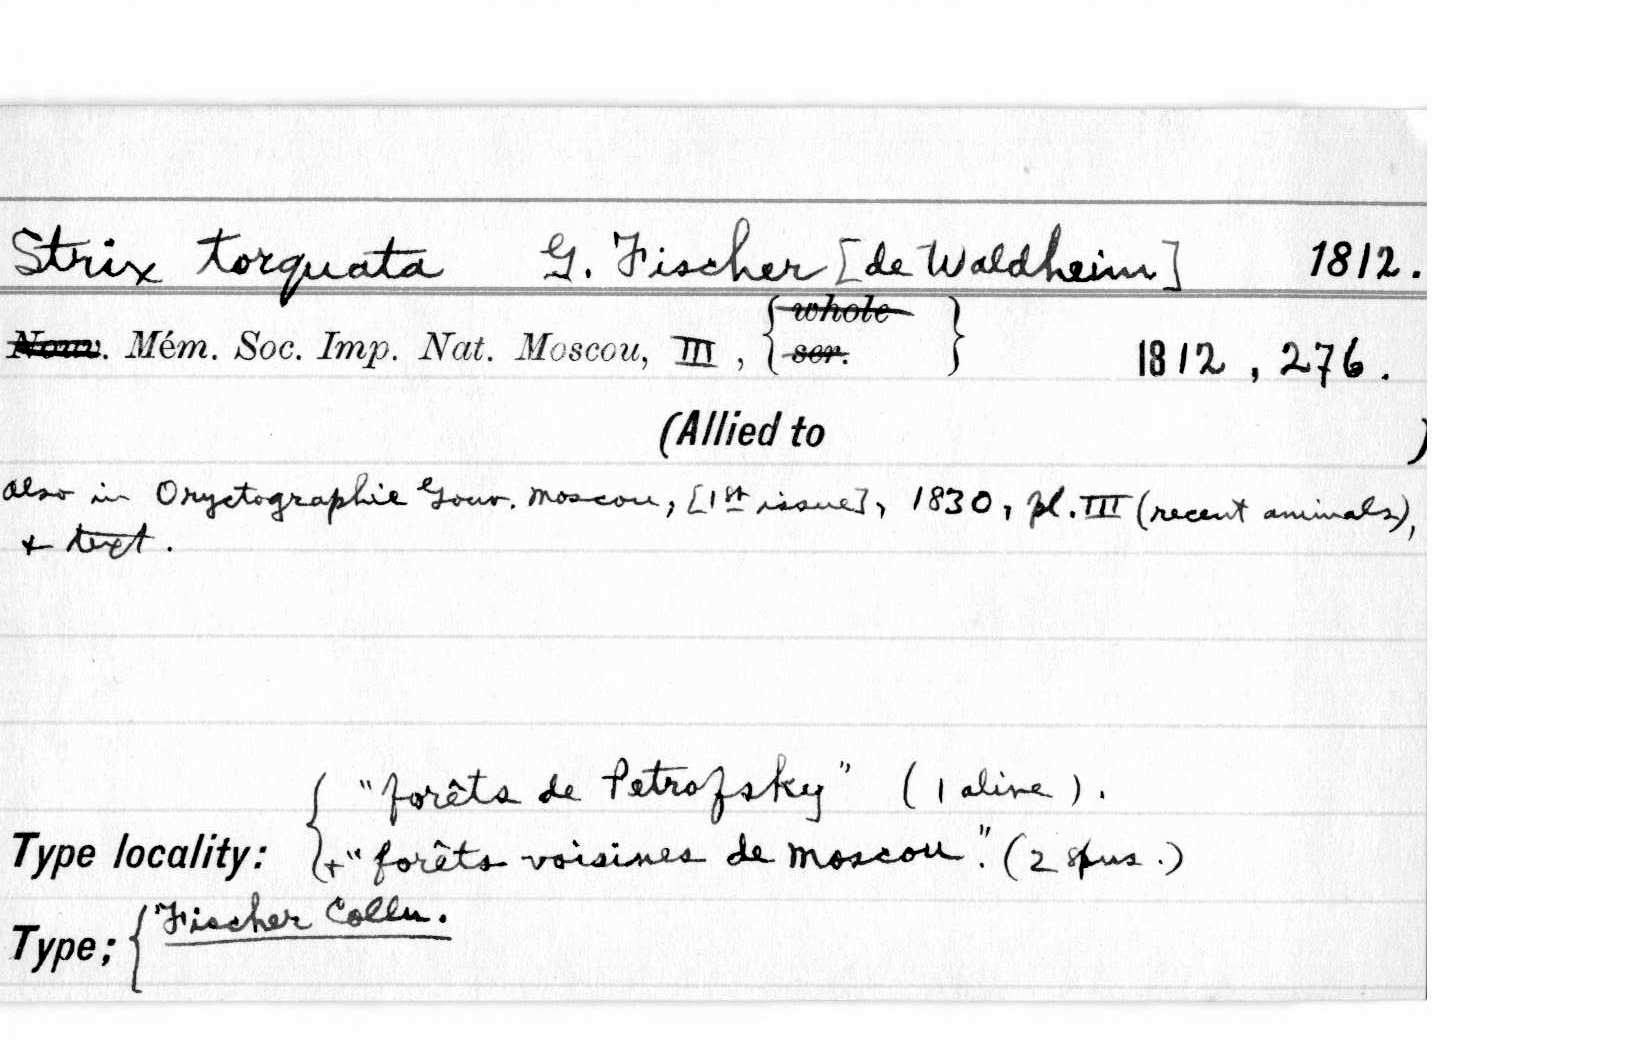 Strix torquata G. Fischer [de Waldheim] 1812.
Nouv. Mém. Soc. Imp. Nat. Moscou, III, { whole ser. } 1812, 276.
(Allied to )
also in Oryctographie Gouv. Moscou, [1st issue], 1830, pl. III (recent animals),
+ text.
{ "forêts de Petrofsky" (1 alive).
Type locality: + "forêts voisines de Moscou". (2 spns.)
Type; { Fischer Colln.